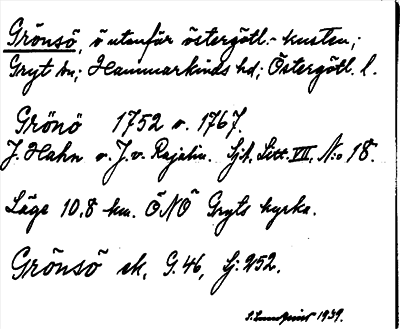 Grönsö, ö utenför östergötl.-kusten;
Gryt sn; Hammarkinds hd; Östergötl. l.
Grönö 1752 o. 1767.
J. Hahn o. J. v. Rajalin. Sj.A. Litt. VII, N:o 18.
Läge 10,8 km. ÖNÖ Gryts kyrka.
Grönsö ek, G. 46, Sj. 252.
1939.